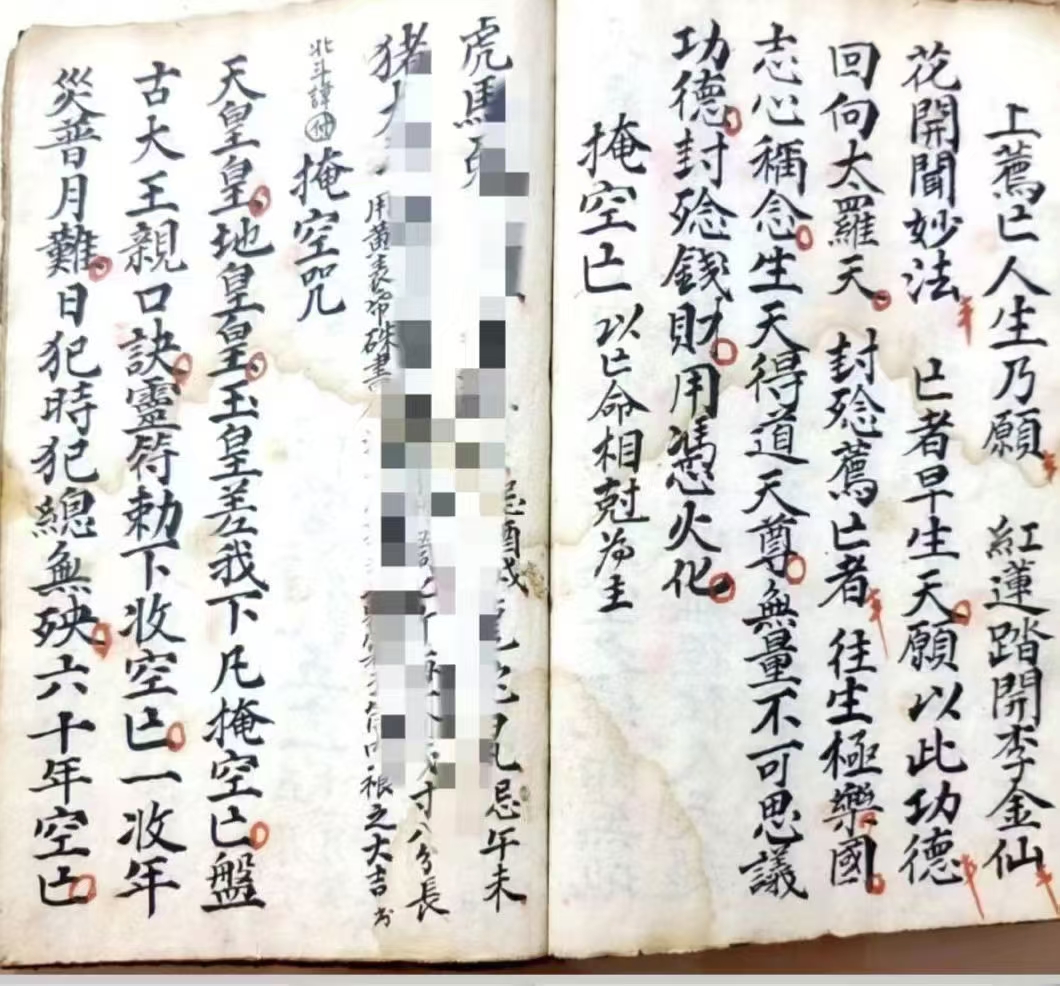 上薦亡人生乃願 紅蓮踏開李金仙
花開聞妙法 亡者早生天願以此功德
回向大羅天 封殮薦亡者 往生極樂國
志心稱念生天得道天尊無量不可思議
功德封殮錢財用憑火化
掩空亡 以亡命相尅為主
虎馬 忌酉 忌年未
猪 寸八分長
用黃表 硃書 根之大吉
北斗諱
掩空咒
天皇皇地皇皇玉皇差我下凡掩空亡盤
古大王親口訣靈符勅下收空亡一收年
災普月難日犯時犯總無殃六十年空亡